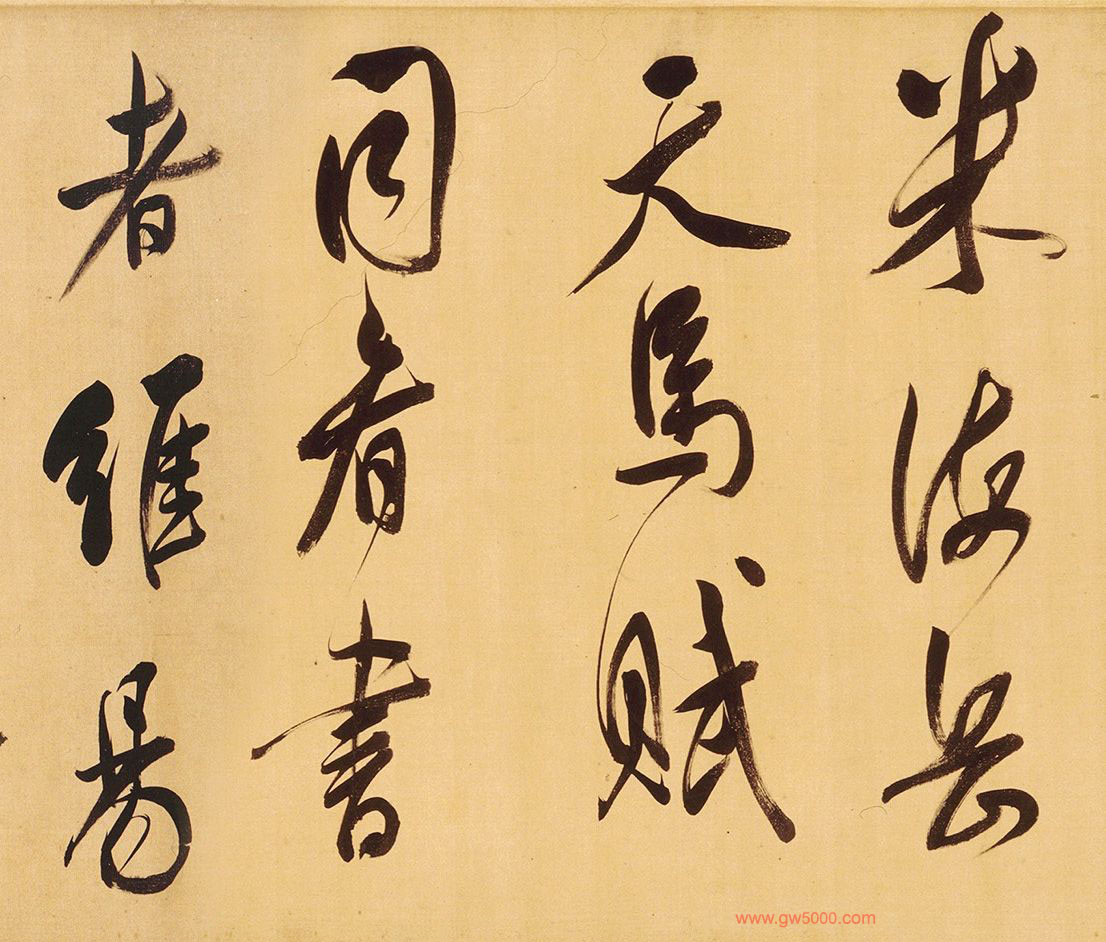 米海岳
天馬賦
同看書
者維易
www.gw5000.com